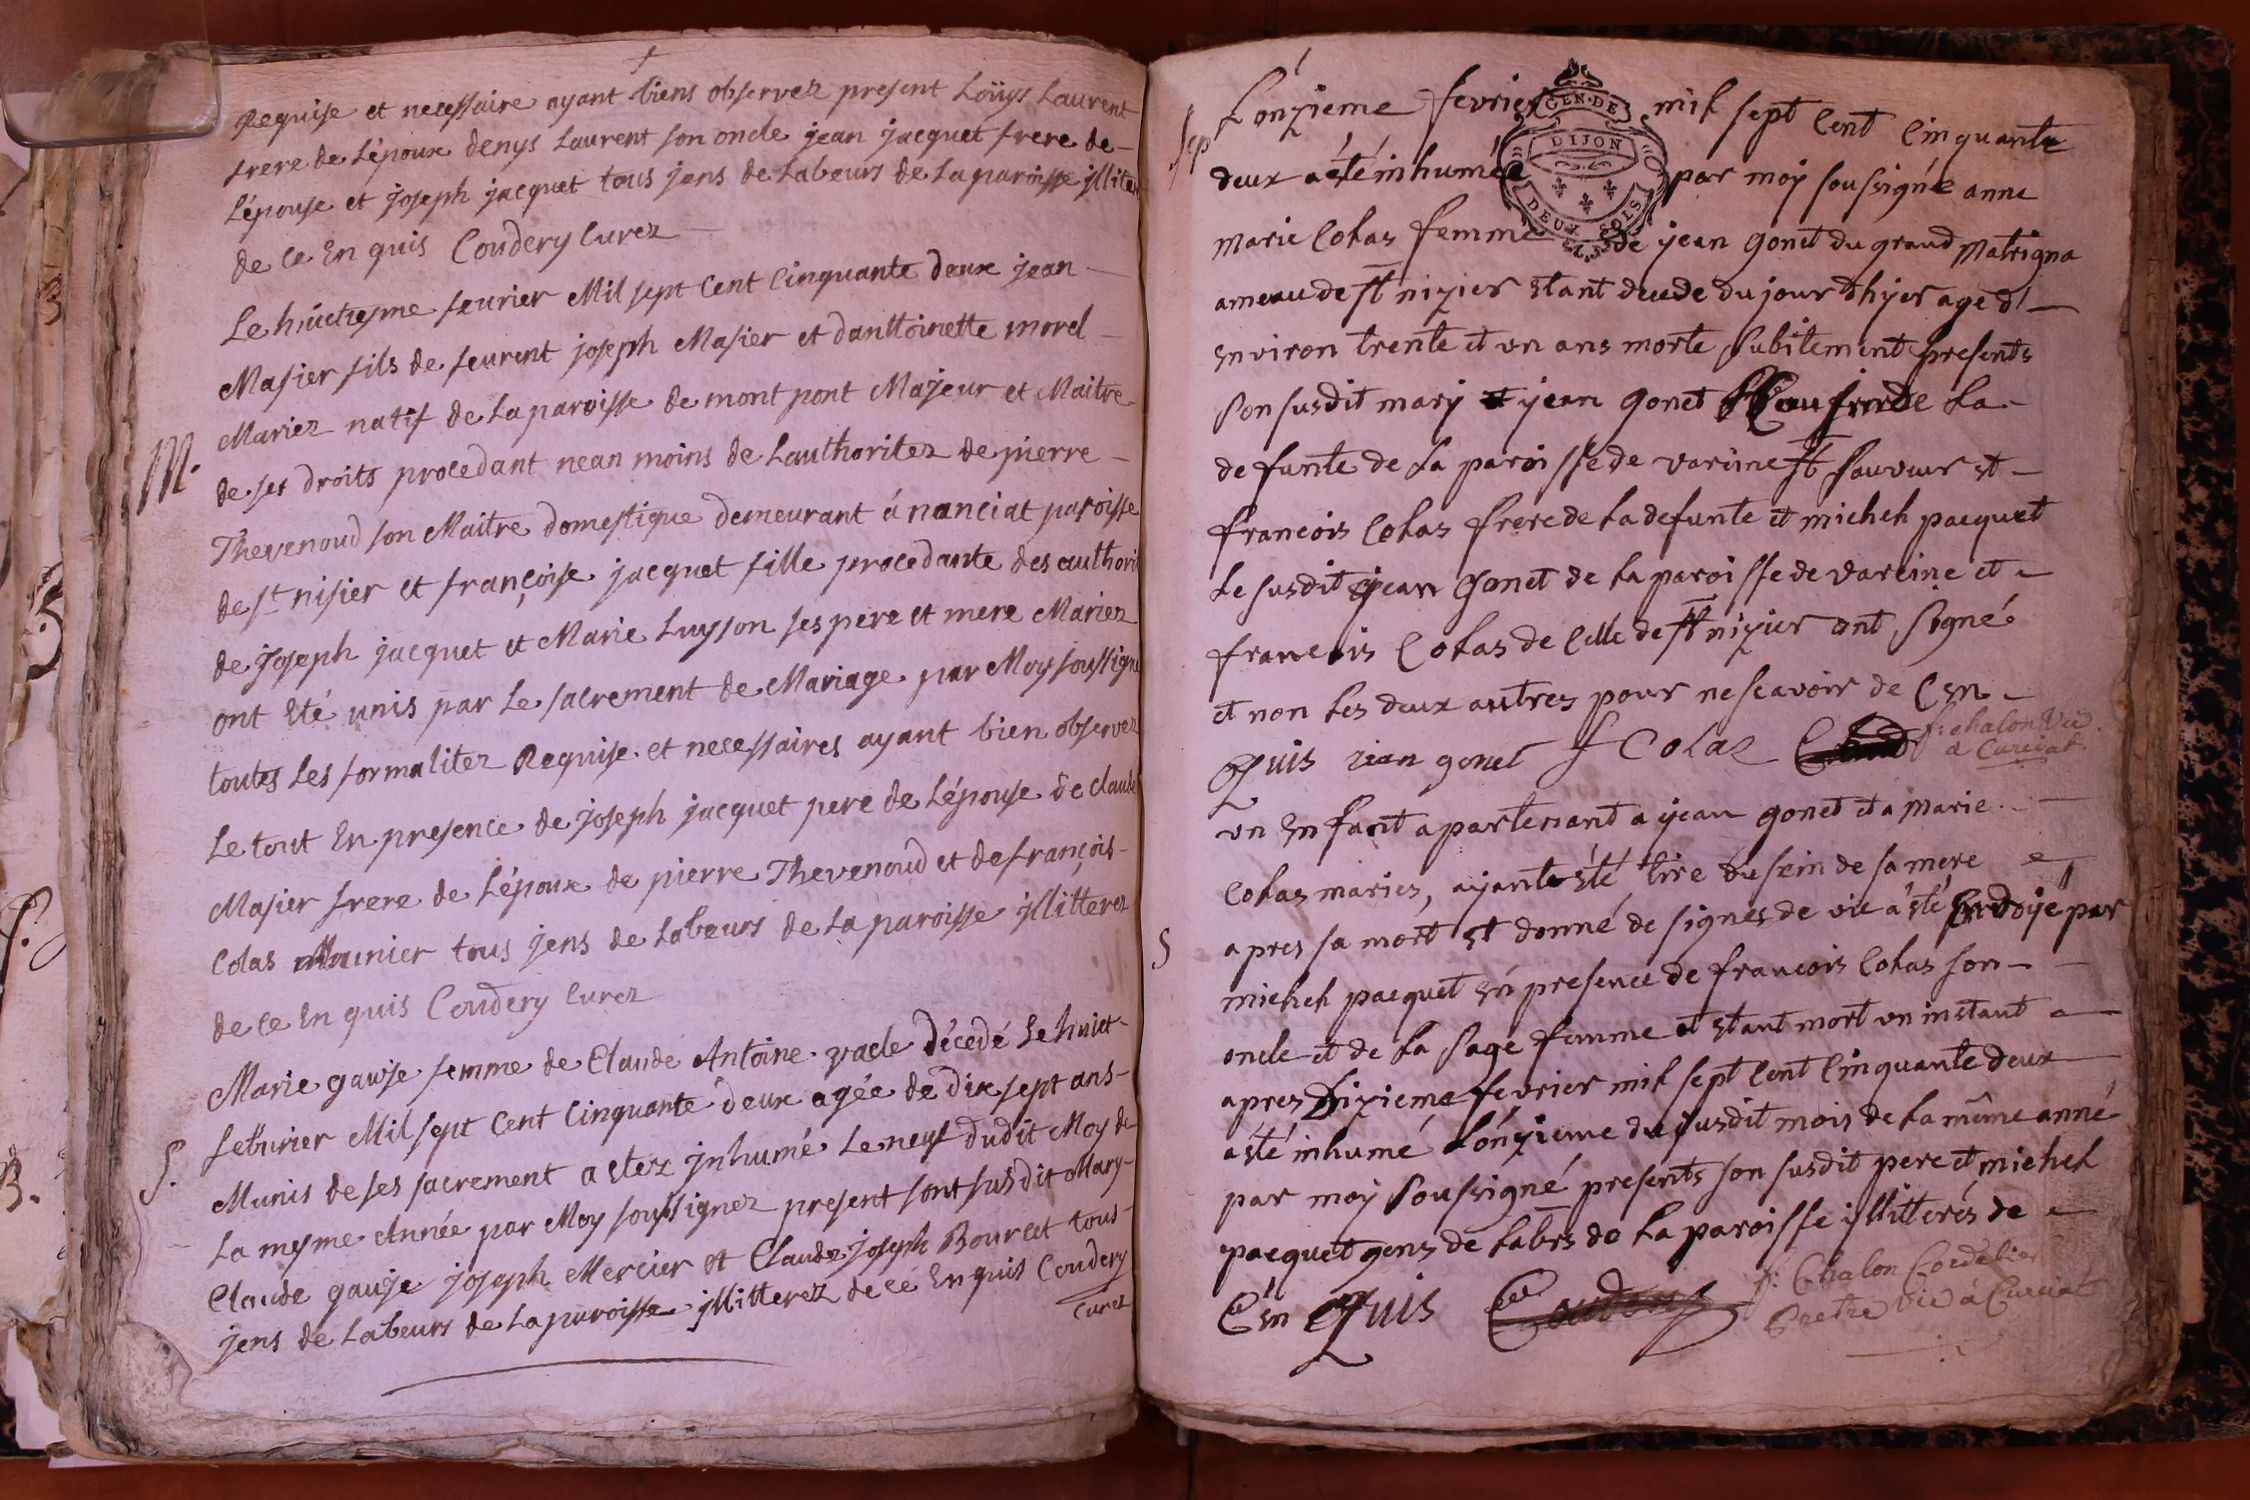 Requise et necessaire ayant biens observez present Loüys Laurent
frere de Lépoux denys Laurent son oncle jean jacquet frere de
Lépouse et joseph jacquet tous jens de Labeurs de La paroisse jlliter
de ce En quis Coudery Curez
Le huictiesme feurier Mil sept Cent Cinquante deux jean
Masier fils de feurent joseph Masier et danttoinette morel
Mariez natif de La paroisse de mont pont Majeur et Maitre
de ses droits procedant nean moins de Lauthoritez de pierre
M.
Thevenoud son Maitre domestique demeurant á nanciat paroisse
de st nisier et françoise jacquet fille procedante des authori
de joseph jacquet et Marie Luyson ses pere et mere Mariez
ont Eté unis par Le sacrement de Mariage par Moy soussigne
toutes Les formalitez Requise et necessaires ayant bien observez
Le tout En presence de joseph jacquet pere de Lépouse de claude
Masier frere de Lépoux de pierre Thevenoud et de françois
Colas Mounier tous jens de Labeurs de La paroisse jllitterez
de ce En quis Coudery Curez
Marie gauje femme de Claude Antoine vacle décedé Le huict
feburier Mil sept Cent Cinquante deux agée de dix sept ans
S.
Munis de ses sacrement a Etez jnhumé Le neuf dudit Moy de
La mesme Année par Moy soussignez present sont susdit Mary
Claude gauje joseph Mercier et Claude joseph Bourcet tous
jens de Labeurs de La paroisse jllitterez de ce En quis Coudery
Curez
Sep
Lonzieme fevrier mil sept Cent Cinquante
GEN·DE
DIJON
DEUX SOLS
deux a été inhumée par moy soussigné anne
marie Colas femme de jean gonet du grand Matrigna
ameau de st nizier etant decede du jour dhyer age d'
environ trente et un ans morte subitement presents
son susdit mary et jean gonet Beaufrere de La
defunte de La paroisse de varine st sauveur et
francois Colas frere de La defunte et michel pacquet
Le susdit jean gonet de La paroisse de vareine et
francois Colas de Celle de st nizier ont signé
et non Les deux autres pour ne scavoir de Cen
quis jean gonet f Colas f: chalon vic
a Curciat
un Enfant apartenant a jean gonet et a marie
Colas maries, ayante été tiré du sein de sa mere
S
apres sa mort et donné de signes de vie a été Endoyé par
michel pacquet En presence de francois Colas son
oncle et de La sage femme et etant mort un instant
apres Dizieme fevrier mil sept Cent Cinquante deux
a été inhumé Lonzieme du susdit mois de La même anné
par moy soussigné presents son susdit pere et michel
pacquet gens de Labrs de La paroisse illitterés de
Cen Quis f: Chalon Cordelier
Pretre vic à Curciat